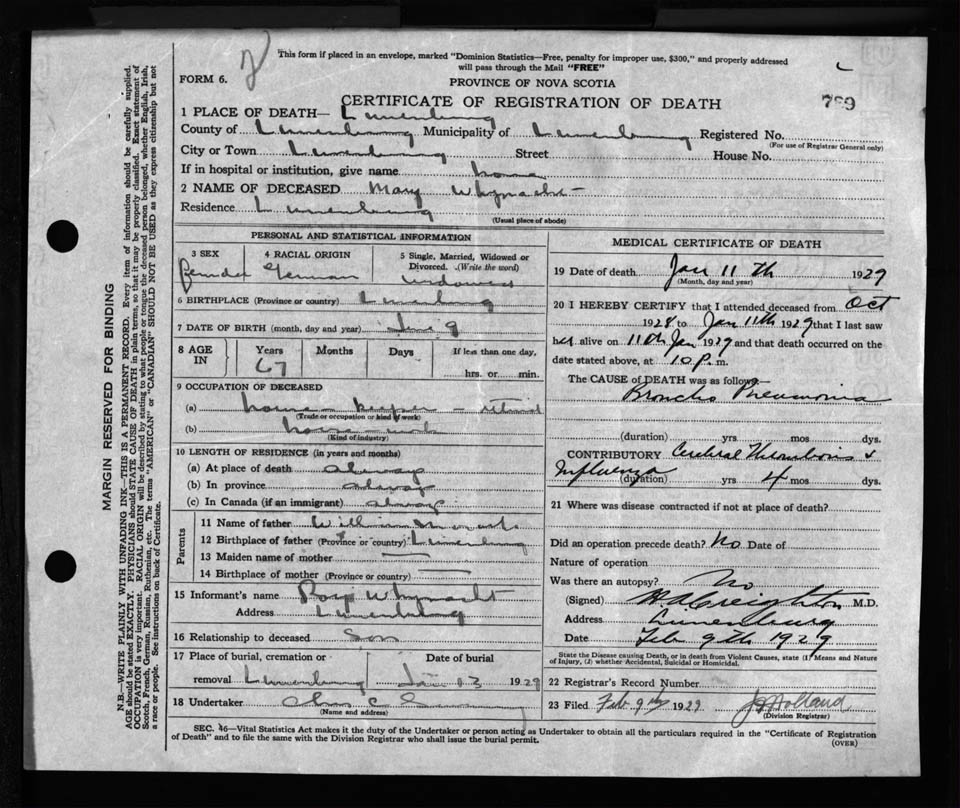 This form if placed in an envelope, marked "Dominion Statistics—Free, penalty for improper use, $300," and properly addressed
will pass through the Mail "FREE"
FORM 6.
PROVINCE OF NOVA SCOTIA
CERTIFICATE OF REGISTRATION OF DEATH
789
1 PLACE OF DEATH— Lunenburg
County of Lunenburg Municipality of Lunenburg Registered No.
(For use of Registrar General only)
City or Town Lunenburg Street House No.
If in hospital or institution, give name home
2 NAME OF DECEASED Mary Whynacht
Residence Lunenburg
(Usual place of abode)
PERSONAL AND STATISTICAL INFORMATION
3 SEX 4 RACIAL ORIGIN 5 Single, Married, Widowed or
Divorced. (Write the word)
Female German widowed
6 BIRTHPLACE (Province or country) Lunenburg
7 DATE OF BIRTH (month, day and year) June 9
8 AGE IN Years Months Days If less than one day,
67 hrs. or min.
9 OCCUPATION OF DECEASED
(a) house-keeper - retired
(Trade or occupation or kind of work)
(b) house-work
(Kind of industry)
10 LENGTH OF RESIDENCE (in years and months)
(a) At place of death always
(b) In province always
(c) In Canada (if an immigrant) always
Parents
11 Name of father William
12 Birthplace of father (Province or country) Lunenburg
13 Maiden name of mother —
14 Birthplace of mother (Province or country) —
15 Informant's name Whynacht
Address Lunenburg
16 Relationship to deceased Son
17 Place of burial, cremation or Date of burial
removal Lunenburg Jan 13 1929
18 Undertaker
(Name and address)
MEDICAL CERTIFICATE OF DEATH
19 Date of death Jan 11th 1929
(Month, day and year)
20 I HEREBY CERTIFY that I attended deceased from Oct
1928 to Jan 11th 1929 that I last saw
her alive on 11th Jan 1929 and that death occurred on the
date stated above, at 10 p. m.
The CAUSE of DEATH was as follows—
Broncho Pneumonia
(duration) yrs. mos. dys.
CONTRIBUTORY Cerebral Thrombosis &
Influenza
(duration) yrs. 4 mos. dys.
21 Where was disease contracted if not at place of death?
Did an operation precede death? No Date of
Nature of operation
Was there an autopsy? No
(Signed) Creighton M.D.
Address Lunenburg
Date Feb 9th 1929
State the Disease causing Death, or in death from Violent Causes, state (1) Means and Nature
of Injury, (2) whether Accidental, Suicidal or Homicidal.
22 Registrar's Record Number
23 Filed Feb 9th 1929 Holland
(Division Registrar)
SEC. 46—Vital Statistics Act makes it the duty of the Undertaker or person acting as Undertaker to obtain all the particulars required in the "Certificate of Registration
of Death" and to file the same with the Division Registrar who shall issue the burial permit.
(OVER)
MARGIN RESERVED FOR BINDING
N.B.—WRITE PLAINLY WITH UNFADING INK—THIS IS A PERMANENT RECORD. Every item of information should be carefully supplied.
AGE should be stated EXACTLY. PHYSICIANS should STATE CAUSE OF DEATH in plain terms, so that it may be properly classified. Exact statement of
OCCUPATION is very important. RACIAL ORIGIN will be described by stating to what people or tongue the deceased person belonged, whether English, Irish,
Scotch, French, German, Russian, Ruthenian, etc. The terms "AMERICAN" or "CANADIAN" SHOULD NOT BE USED as they express citizenship but not
a race or people. See instructions on back of Certificate.